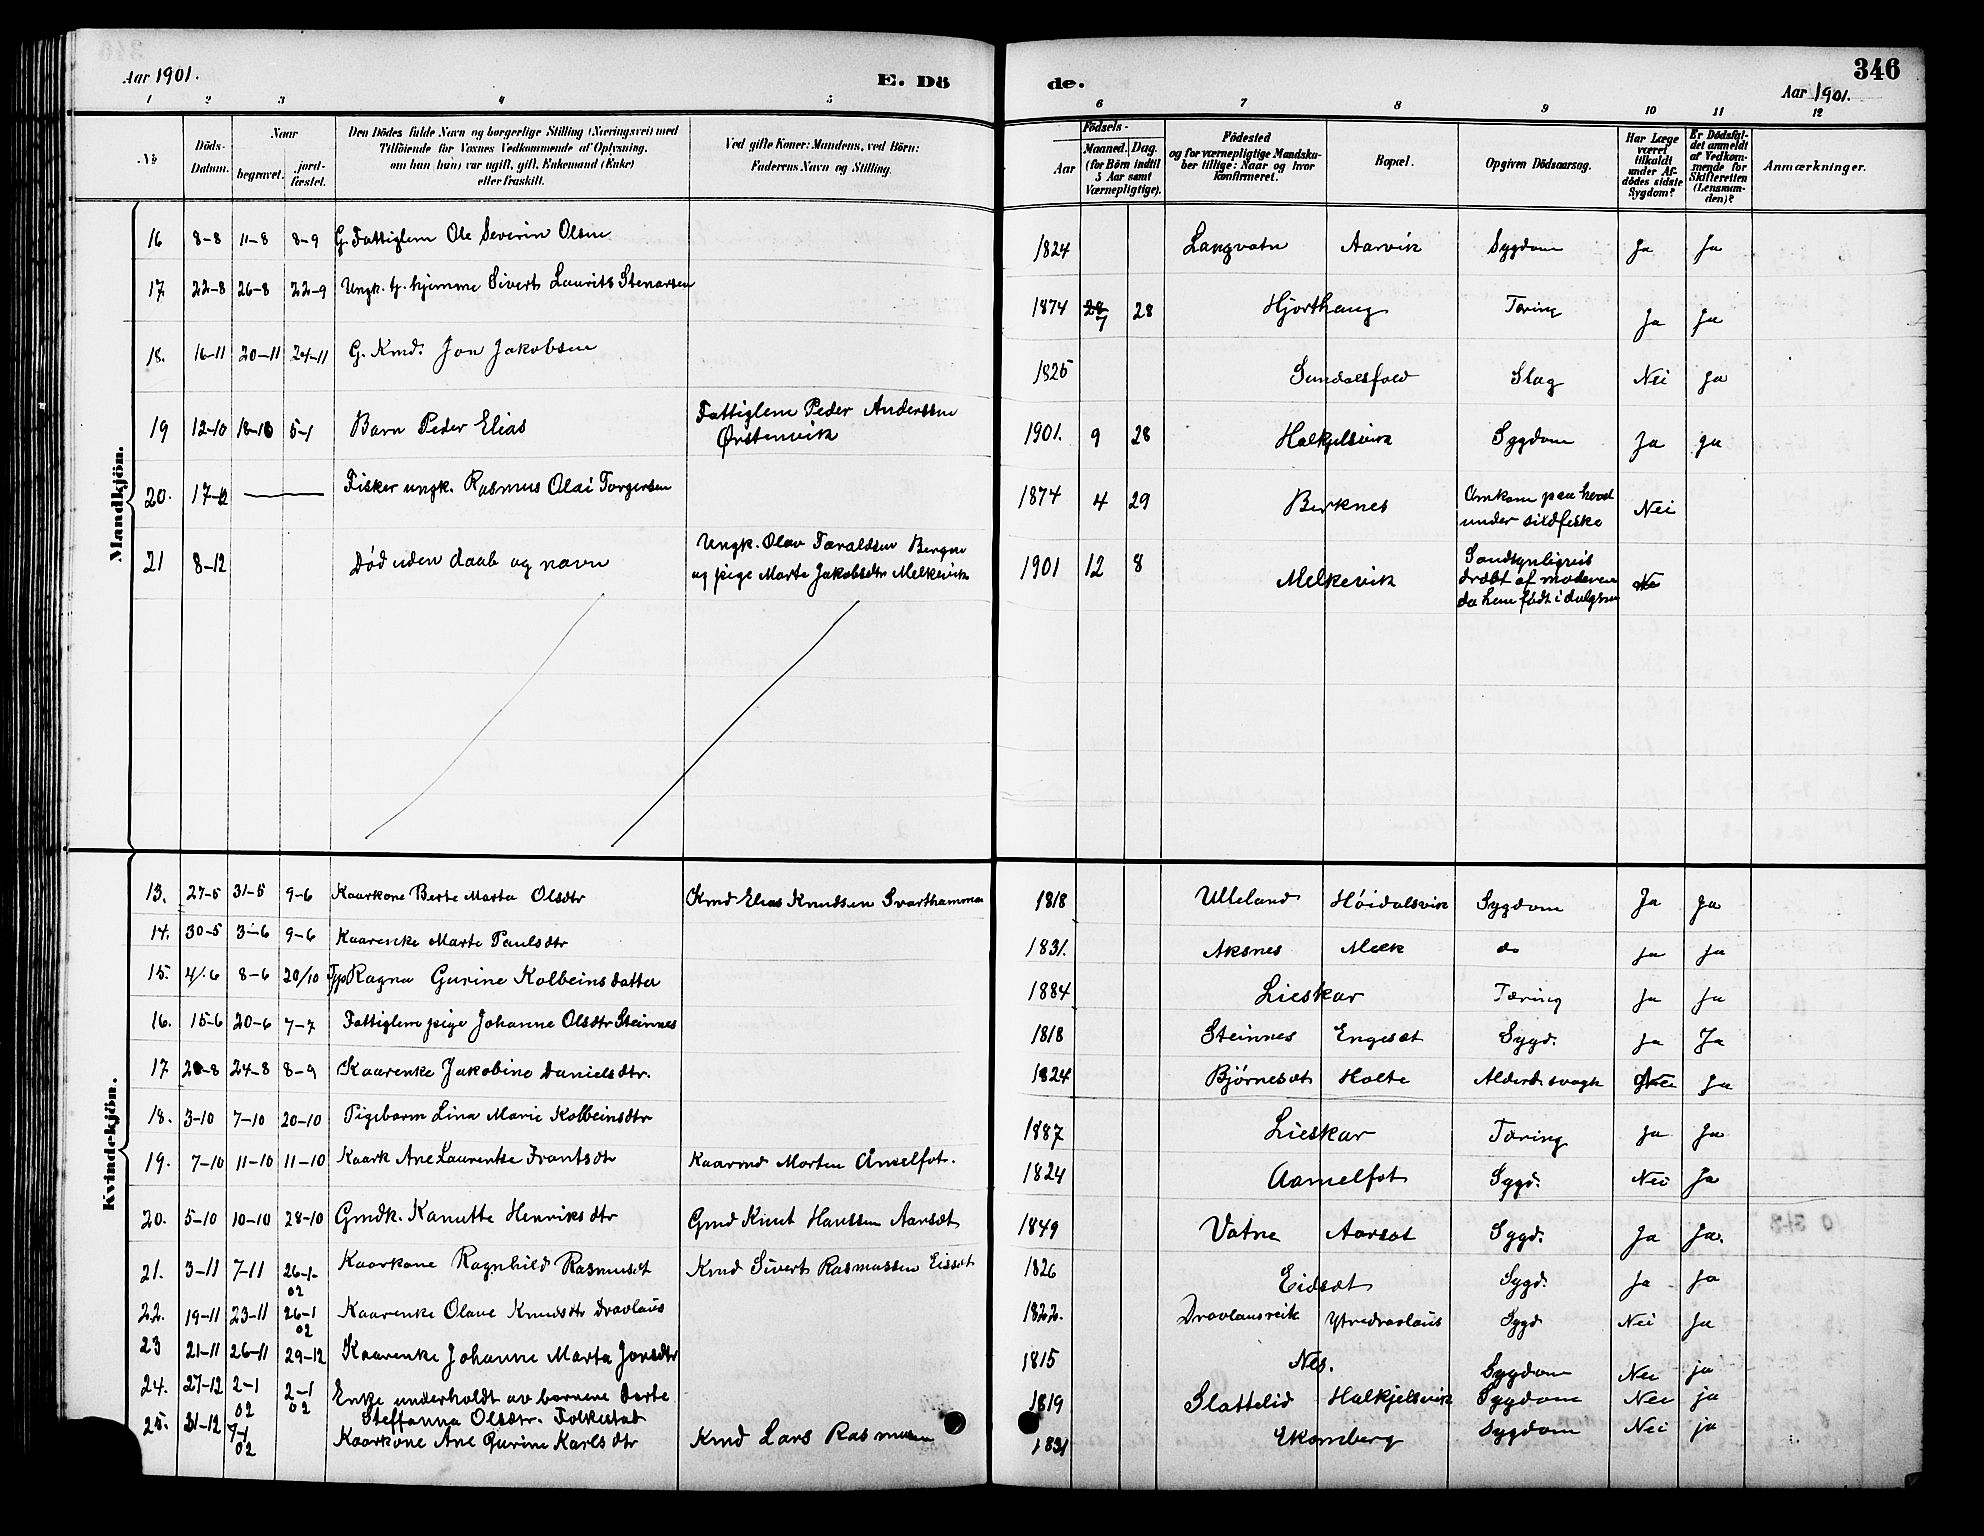 346
Aar 1901.
E. Dö de.
Aar 1901.
1 2 3 4 5 6 7 8 9 10 11 12
No
Döds-Datum.
Naar
begravet.
jord-fæstet.
Den Dödes fulde Navn og borgerlige Stilling (Næringsvei) med
Tilföiende for Voxnes Vedkommende af Oplysning,
om han (hun) var ugift, gift, Enkemand (Enke)
eller fraskilt.
Ved gifte Koner: Mandens, ved Börn:
Faderens Navn og Stilling.
Födsels-
Aar
Maaned. Dag.
(for Börn indtil
5 Aar samt
Værnepligtige).
Födested
og for værnepligtige Mandska-
ber tillige: Naar og hvor
konfirmeret.
Bopæl.
Opgiven Dödsaarsag.
Har Læge
været
tilkaldt
under Af-
dödes sidste
Sygdom?
Er Dödsfal-
det anmeldt
af Vedkom-
mende for
Skifteretten
(Lensman-
den)?
Anmærkninger.
Mandkjön.
16 8-8 11-8 8-9 G. Fattiglem Ole Severin Olsen 1824 Langvatn Aarvik Sygdom Ja Ja
17. 22-8 26-8 22-9 Ungk. hj. hjemme Sivert Laurits Stenarsen 1874 7 28 Hjorthaug Tæring Ja Ja
18. 16-11 20-11 24-11 G. Kmd. Jon Jakobsen 1825 Sundalsfold Slag Nei Ja
19 12-10 18-10 5-1 Barn Peder Elias Fattiglem Peder Anderssen
Ørstenvik 1901. 9 28 Halkjelsvik Sygdom Ja ja
20. 17-12 Fisker ungk. Rasmus Olai Torgersen 1874 4 29 Birknes Omkom paa havet
under sildfiske Nei
21 8-12 Død uden daab og navn Ungk. Olav Taraldsen Bergem
og pige Marte Jakobsdtr Melkevik 1901 12 8 Melkevik Sandsynligvis
dræbt af moderen
da hun født i dulgsm Nei
Kvindekjön.
13. 27-5 31-5 9-6 Kaarkone Berte Marta Olsdtr Kmd Elias Knudsen Svarthammer 1818 Ulleland Høidalsvik Sygdom Ja ja
14. 30-5 3-6 9-6 Kaarenke Marte Paulsdtr 1831. Aksnes Melk do Ja Ja
15. 4/-6 8-6 20/10 Ragna Gurine Kolbeinsdatter 1884 Lieskar Tæring Ja Ja
16. 15-6 20-6 7-7 Fattiglem pige Johanne Olsdtr Steinnes 1818 Steinnes Engeset Sygd. Ja Ja
17 20-8 24-8 8-9 Kaarenke Jakobine Danielsdtr. 1824 Bjørneset Holte Alderdsvagh Nei Ja
18. 3-10 7-10 20-10 Pigebarn Lina Marie Kolbeinsdtr 1887 Lieskar Tæring Ja Ja
19. 7-10 11-10 11-10 Kaark Ane Laurentse Frantsdtr Kaarmd Morten Aamelfot. 1824 Aamelfot Sygd. Nei Ja
20. 5-10 10-10 28-10 Gmdk. Kanutte Henriksdtr Gmd Knut Hanssen Aarset 1849 Vatne Aarset Sygd. Ja Ja.
21. 3-11 7-11 26-1-02 Kaarkone Ragnhild Rasmusdt Kmd Sivert Rasmussen Eisset 1826 Eidset Sygd. Ja Ja
22. 19-11 23-11 26-1 02 Kaarenke Olave Knudsdtr Dravlaus 1822. Dravlausreit Ytredravlaus Sygd Nei Ja
23 21-11 26-11 29-12 Kaarenke Johanne Marta Jonsdtr 1815 Nes. Sygdom Nei ja
24. 27-12 2-1 02 2-1 02 Enke underholdt av børnene Dorte
Steffanna Olsdtr. Folkestad 1819 Slattelid Halkjelsvik Sygdom Nei ja
25. 31-12 7-1 02 Kaarkone Ane Gurine Karlsdtr Kmd Lars Rasmussen 1831 Ekornberg Sygdom Nei ja